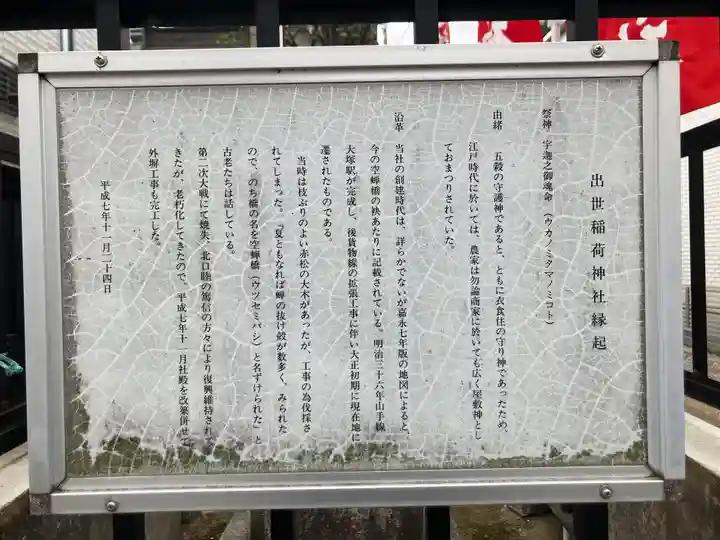 出世稲荷神社縁起
祭神 宇迦之御魂命 (ウカノミタマノミコト)
由緒 五穀の守護神であると、ともに衣食住の守り神であったため、
江戸時代に於いては、農家は勿論商家に於いても広く屋敷神とし
ておまつりされていた。
沿革 当社の創建時代は、詳らかでないが嘉永七年版の地図によると、
今の空蟬橋の袂あたりに記載されている。明治三十六年山手線
大塚駅が完成し、後貨物線の拡張工事に伴い大正初期に現在地に
遷されたものである。
当時は枝ぶりのよい赤松の大木があったが、工事の為伐採さ
れてしまった。『夏ともなれば蟬の抜け殻が数多く、みられた
ので、のち橋の名を空蟬橋(ウツセミバシ)と名ずけられた」と
古老たちは話している。
第二次大戦にて焼失、北口睦の篤信の方々により復興維持されて
きたが、老朽化してきたので、平成七年十一月社殿を改築併せて
外塀工事も完工した。
平成七年十一月二十四日